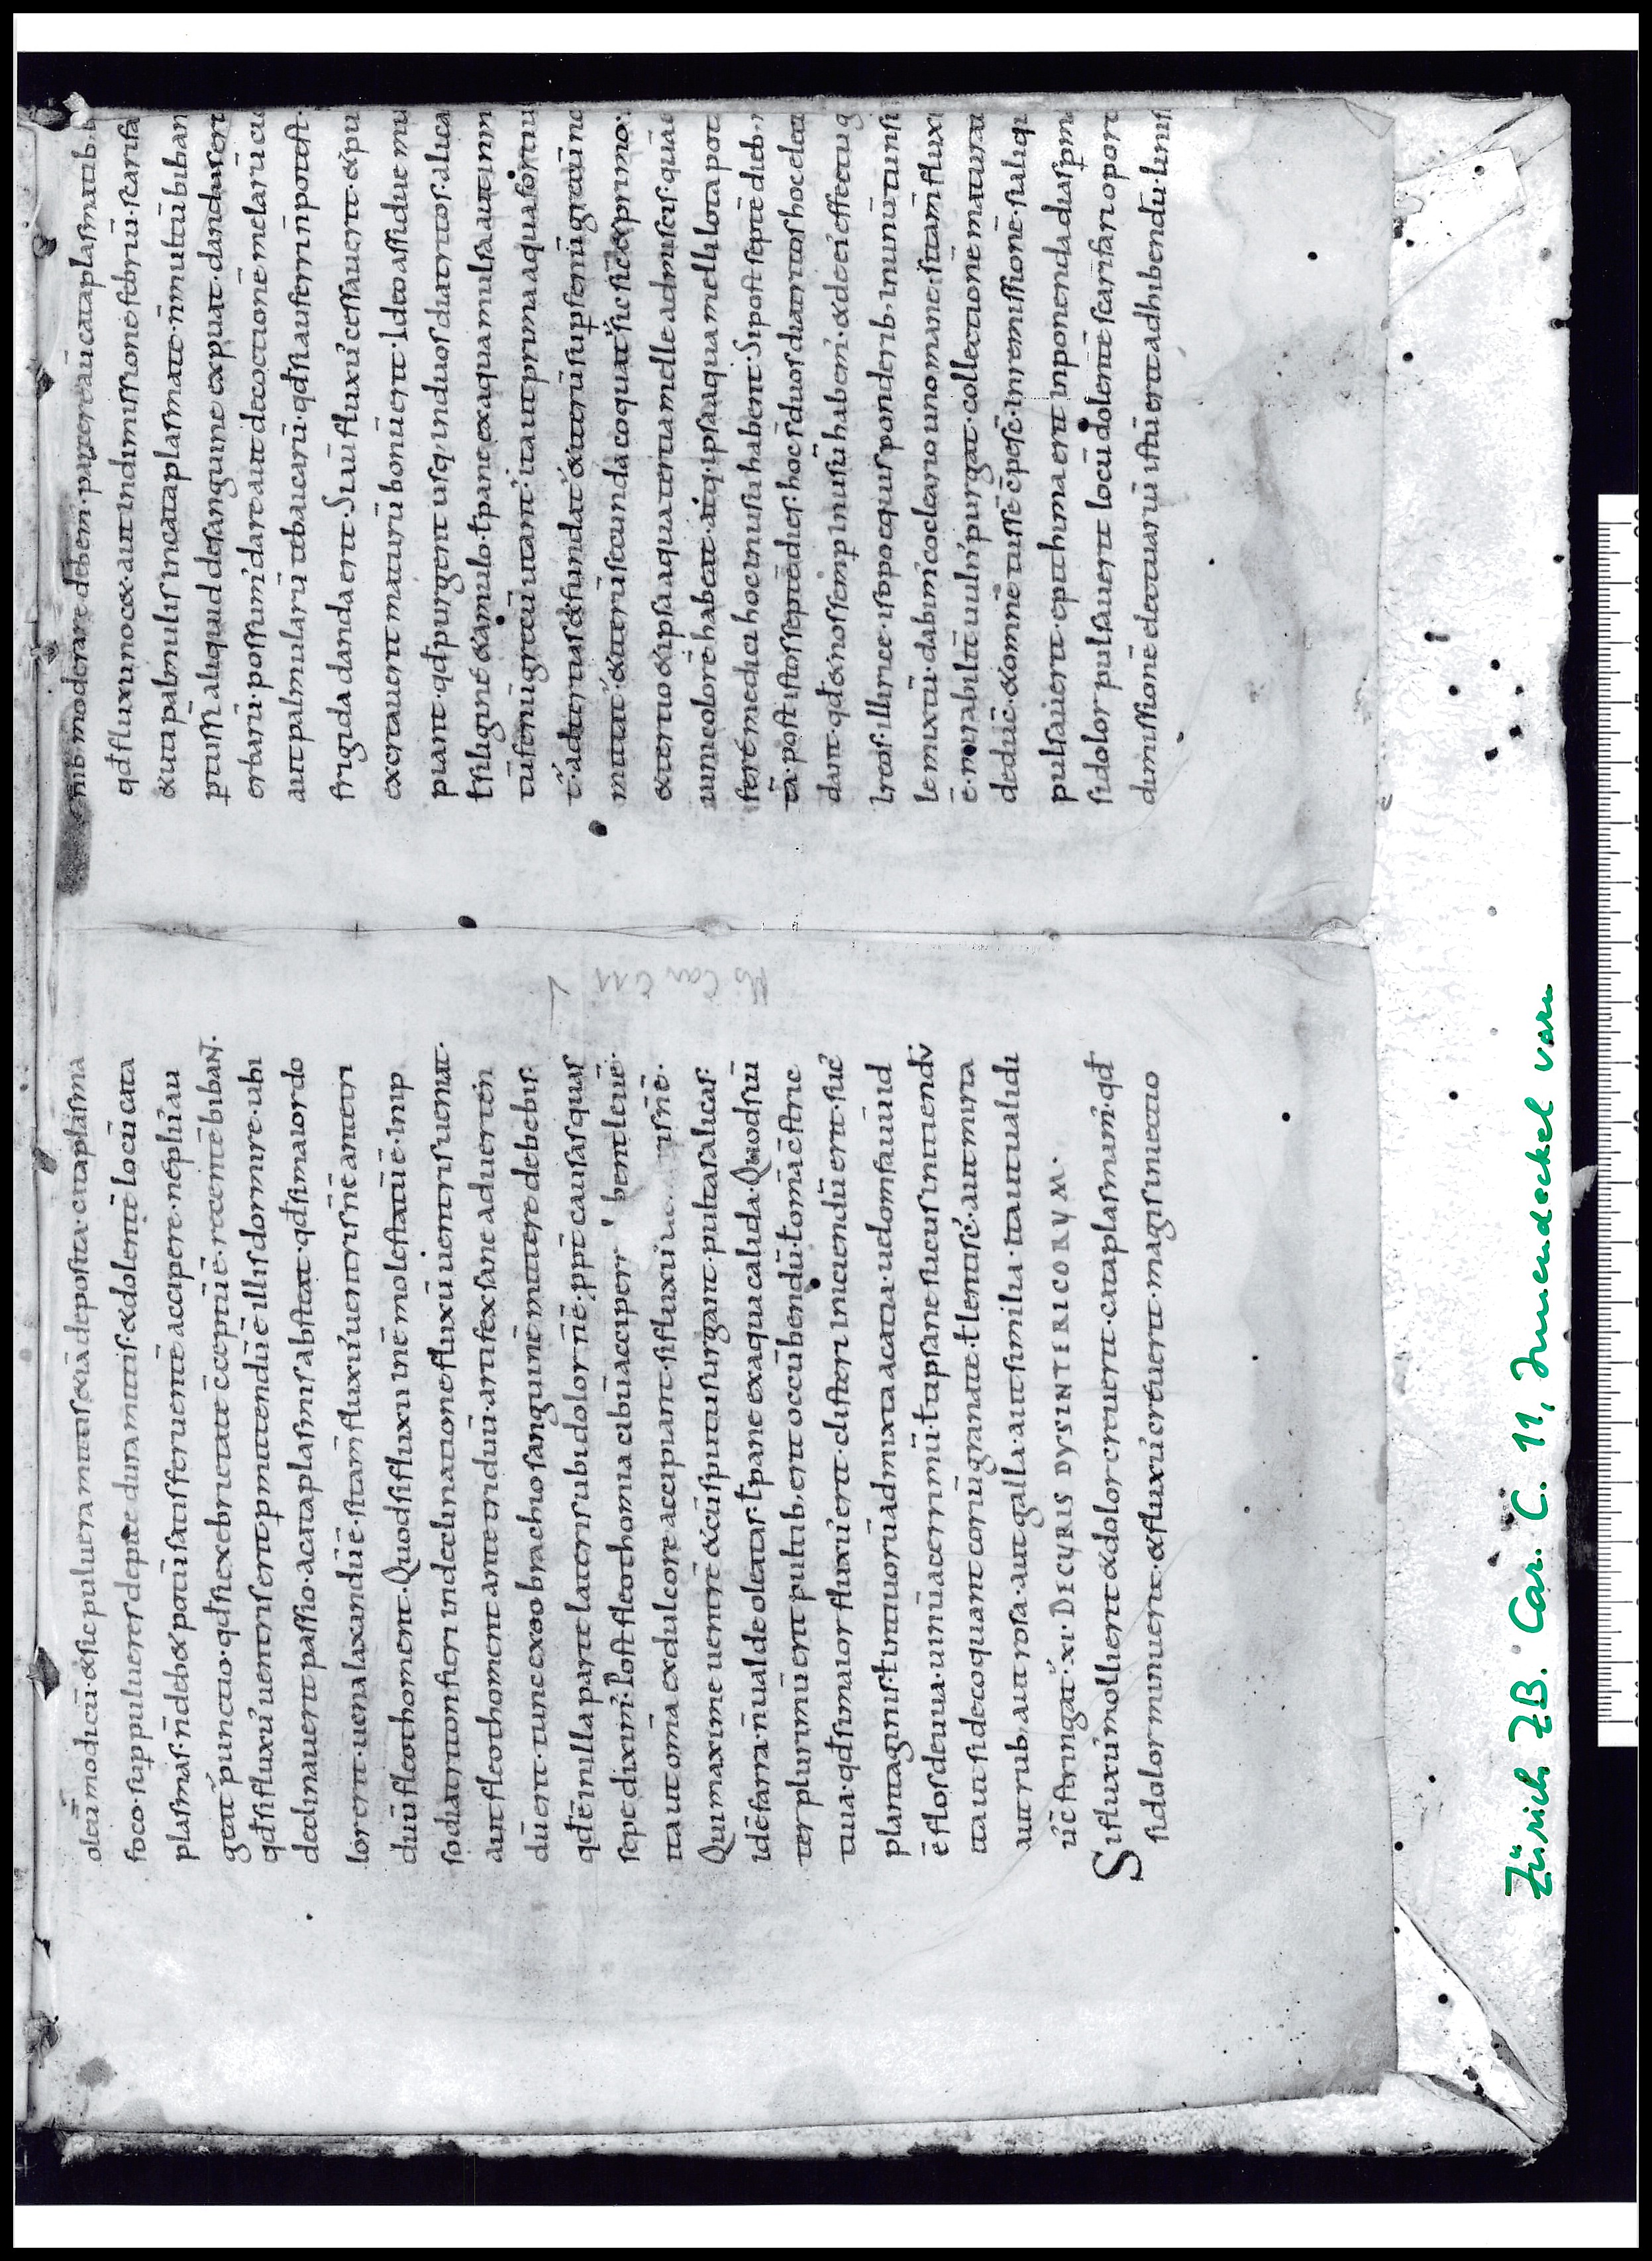 oleū modicū · & sic puluera mittis & iā deposita · cataplasma
foco · sup pulueres depice dura mittis · & dolentē locū cata
plasmas · n̄ deb& potū satis feruentē accipere · ne plú au
gat̄ punctio · qđ si ex ebrietate c̄ceptū ē · recentē bibant ·
qđ si fluxú uentris erit pmittendū ē illis dormire · ubi
declinauerit passio · a cataplasmis abstetat · qđ si maior do
lor erit · uena laxandū ē · si tam̄ fluxú uentris n̄ ē ante tri
duū fleothoment · Quod si fluxu in ē molestatū ē · inip
so diatriton fieri in declinatione fluxū uentris ueniat ·
aut fleothoment ante triduū · artifex sane aduerten
dū erit · tunc ex eo brachio sanguinē mittere debebis ·
qđ ē in illa parte lateris ubi dolor n̄ ē · ppt̄ causas quas
sepe diximꝰ · Post fleothomia cibū acciper bent leuē ·
ita ut om̄a ex dulcore accipiant · si fluxū is n̄ ē ·
Qui maxime uentrē & cū spiritu surgant · pultas alicas ·
idē farra · n̄ ualde oleatas · ł pane ex aqua calida · Quod si ū
ter plurimū erit pultib · erit occūbendū · tomā c̄stric
tiua · qđ si maior fluxú erit · clisteri iniciendū erit · sucꝰ
plantaginis · ł intiuorū admixta acatia · uedomfauuid
ē flos de uua · uinū acerrimū · ł tipsane sucus in ituendū
ita ut si decoquant coriū granati · ł lentise · aut mirta
aut rub · aut rosa · aut galla · aut similia · ita ut ualidi
úc̄ stringat̄ · XI · DE CYRIS DYSINTERICORYM ·
Si fluxú mollierit & dolor creuerit · cataplasmamꝰ · qđ
si dolor minuerit · & fluxú creuerit · magis iniectio
nib moderare debem · parere aū cataplasmatib
qđ fluxu in oc& · aut in dimissionē febriū · scarifa
& uta palmulis in cataplasmate · n̄ multū biban
ptussī aliquid de sanguine expuat · dandu seri
erbarū · possumꝰ dare aut decoctionē melarū cū
aut palmularū t baucarū · qđ si auferri n̄ potest ·
frigida danda erit · Si aū fluxú cessauerit · & pu
excreauerit maturū bonū erit · Ideo assidue mu
piant · qđ purgent usq; in duos diatritos · alica
ł siligine & amulo · ł pane ex aqua mulsa aut inm
tū fenūgrecū utant̄ · ita ut prima aqua fortiu
t̄ · ad tertias & fundat̄ & iterū sup fenūgrecū no
mittat̄ · & iterū secunda coquat̄ sic sic & primo ·
& tertio & ipsa aqua tertia melle admiscis · quāe
uini colorē habeat · atq; ipsa aqua melli lota pot
fere medici hoc in usu habent · Si post septē dieb ·
tā · post istos septē dies · hoc ē duos diatritos hoc elect
dant · qđ & nos semp in usū habemꝰ · & de eiꝰ effectu q
Ireos · illirice · isopo equis ponderib · in unū tunsi
le mixtū · dabimꝰ cocleario uno mane · si tam̄ fluxi
ē · mirabilit̄ uulnꝰ purgat · collectionē matura
deducꝰ · & omnē tussē c̄pesc̄ · in remissionē · si aliqu
pulsauerit · epithima erit inponenda diaspm
si dolor pulsauerit locū dolentē scarifari oport
dimissionē electuariū istū erit adhibendū · linis
Ms Car C 11
Zürich, ZB. Car. C. 11, Innendeckel vorn